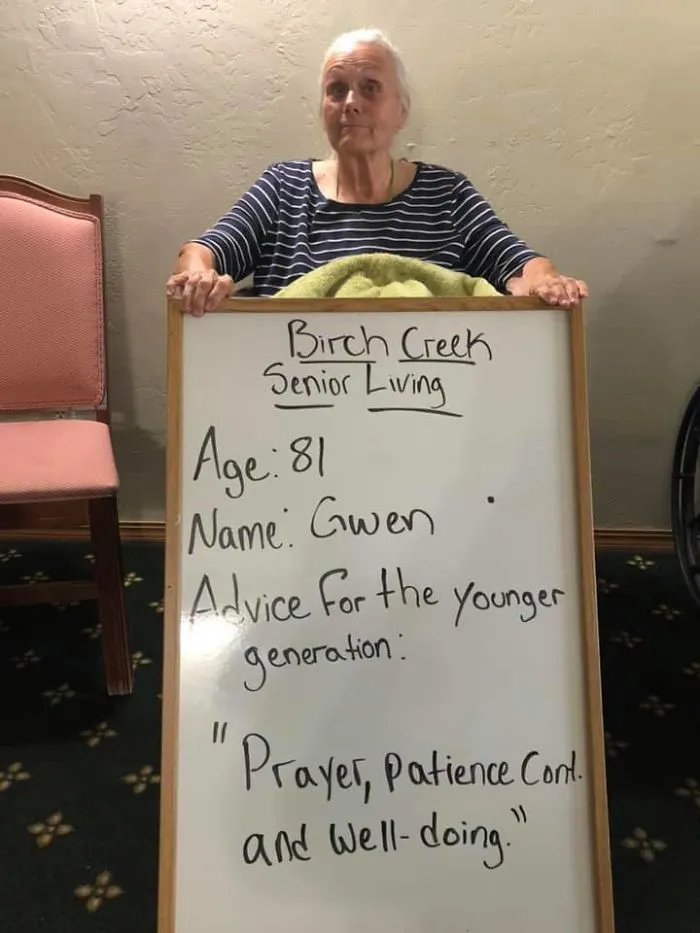 Birch Creek
Senior Living
Age: 81
Name: Gwen
Advice for the younger
generation:
"Prayer, Patience Cont.
and Well-doing."